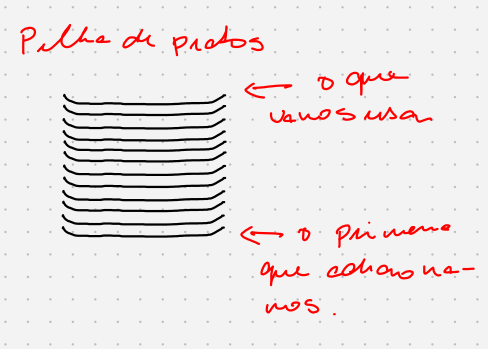 Pilha de pratos
o que
vamos usar
o primeiro
que adiciona-
mos.